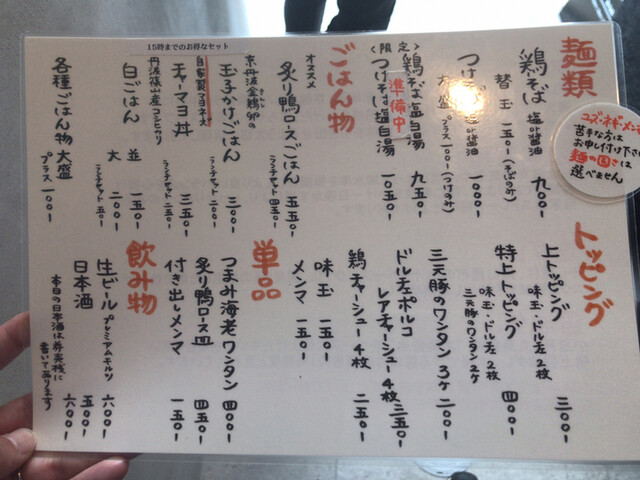 麺類
鶏そば 塩or醤油 九〇〇-
替玉 一五〇-(そばのみ)
つけそば 塩or醤油 一〇〇〇-
大盛 一五〇-(つけのみ)
〈限定〉
鶏そば塩白湯 九五〇-
つけそば塩白湯 一〇五〇-
準備中
コーズ・ネギ・メンマ
苦手な方は
お申し付け下さい
麺の固さは
選べません
ごはん物
オススメ
炙り鴨ロースごはん 五五〇-
ランチセット 四五〇-
京丹波金鶏卵の
玉子かけごはん 三〇〇-
ランチセット 二〇〇-
15時までのお得なセット
自家製マヨネーズ
チャーマヨ丼 三五〇-
ランチセット 二五〇-
丹波篠山産コシヒカリ
白ごはん 並 一五〇-
大 二〇〇-
ランチセット 五〇-
各種ごはん物大盛
プラス 一〇〇-
トッピング
上トッピング 三〇〇-
味玉・ドル左 2枚
特上トッピング 四〇〇-
味玉・ドル左 2枚
三元豚のワンタン 2ケ
三元豚のワンタン 3ケ 二〇〇-
ドルチェポルコ
レアチャーシュー 4枚 三五〇-
鶏チャーシュー 4枚 二五〇-
味玉 一五〇-
メンマ 一五〇-
単品
つまみ海老ワンタン 四〇〇-
炙り鴨ロース皿 四五〇-
付き出しメンマ 一五〇-
飲み物
生ビール プレミアムモルツ 六〇〇-
日本酒 五〇〇-
六〇〇-
本日の日本酒は券売機に
書いてあります